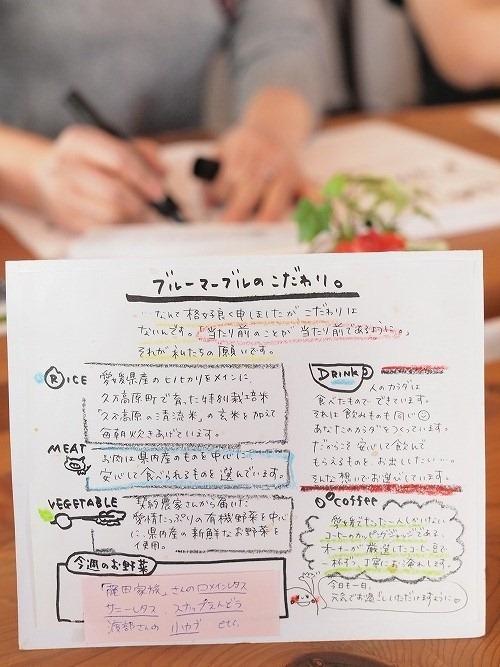 ブルーマーブルのこだわり。
…なんて格好良く申しましたが こだわりは
ないんです。「当たり前のことが 当たり前であるように」。
それが私たちの願いです。
RICE
愛媛県産のヒノヒカリをメインに
久万高原町で育った特別栽培米
「久万高原の清流米」の玄米を加えて
毎朝炊きあげています。
MEAT
お肉は県内産のものを中心に
安心して食べられるものを選んでいます。
VEGETABLE
契約農家さんから届いた
愛情たっぷりの有機野菜を中心
に、県内産の新鮮なお野菜を
使用。
今週のお野菜
「藤田家族」さんのロメインレタス
サニーレタス スナップえんどう
渡部さんの 小カブ etc.
DRINK
人のカラダは
食べたものでできています。
それは飲みものも同じ
あなたのカラダをつくっています。
だからこそ安心して飲んで
もらえるものを、お出ししたい…。
そんな想いでお選びしています。
coffee
愛媛でたった一人しかいない
コーヒーのカッピングジャッジである、
オーナーが厳選したコーヒー豆で
一杯ずつ、丁寧にお淹れします。
今日も一日、
元気でお過ごしいただけますように